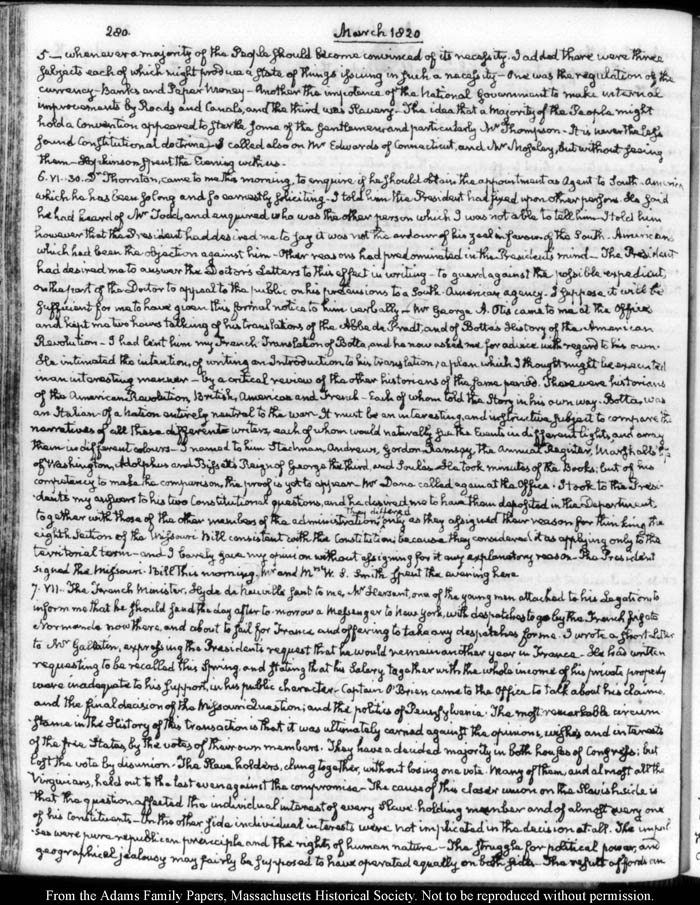 280.
March 1820
5 — whenever a majority of the People should become convinced of its necessity. I added there were three
subjects each of which might produce a state of things issuing in such a necessity — One was the regulation of the
currency — Banks and Paper Money — Another the impotence of the National Government to make internal
improvements by Roads and Canals, and the third was Slavery. The idea that a Majority of the People might
hold a Convention appeared to startle some of the Gentlemen, and particularly Mr Thompson. It is nevertheless
sound Constitutional doctrine. I called also on Mr Edwards of Connecticut, and Mr Moseley, but without seeing
them — Hopkinson spent the Evening with us.
6. VI. 30. Dr Thornton, came to me this morning, to enquire if he should obtain the appointment as Agent to South America
which he has been so long and so earnestly soliciting — I told him the President had fixed upon other persons. He said
he had heard of Mr Todd, and enquired who was the other person which I was not able to tell him — I told him
however that the President had desired me to say it was not the ardour of his zeal in favour of the South-Americans
which had been the objection against him — Other reasons had predominated in the President's mind — The President
had desired me to answer the Doctor's Letters to this effect in writing — to guard against the possible expedient,
on the part of the Doctor to appeal to the public on his pretensions to a South-American agency. I suppose it will be
sufficient for me to have given this formal notice to him verbally. Mr George A. Otis came to me at the Office
and kept me two hours talking of his translations of the Abbé de Pradt, and of Botta's History of the American
Revolution — I had lent him my French Translation of Botta, and he now asked me for advice with regard to his own.
He intimated the intention, of writing an Introduction to his translation; a plan which I thought might be executed
in an interesting manner — by a critical review of the other historians of the same period. There were historians
of the American Revolution, British, American and French — Each of whom told the Story in his own way. Botta, was
an Italian — of a nation entirely neutral to the war. It must be an interesting, and instructive subject to compare the
narratives of all these different writers, each of whom would naturally see the Events in different lights, and array
them in different colours — I named to him Stedman, Andrews, Gordon, Ramsay, the Annual Register, Marshall's Life
of Washington, Adolphus and Bissett's Reign of George the third, and Soulés. He took minutes of the Books; but of his
competency to make the comparison, the proof is yet to appear. Mr Dana called again at the Office. I took to the Presi-
dent's my answers to his two Constitutional questions, and he desired me to have them deposited in the Department
together with those of the other members of the administration. They differed only as they assigned their reason for thinking the
eighth Section of the Missouri Bill consistent with the Constitution, because they considered it as applying only to the
territorial term — and I barely gave my opinion without assigning for it any explanatory reason. The President
signed the Missouri Bill this morning. Mr and Mrs W. S. Smith spent the evening here.
7. VII. The French Minister, Hyde de Neuville sent to me, Mr Thersent, one of the young men attached to his Legation to
inform me that he should send the day after to-morrow a Messenger to New York, with despatches to go by the French frigate
Normande now there, and about to sail for France and offering to take any despatches for me. I wrote a short Letter
to Mr Gallatin, expressing the President's request that he would remain another year in France — He has written
requesting to be recalled this Spring, and stating that his Salary together with the whole income of his private property
were inadequate to his support, in his public character. Captain O'Brien came to the Office to talk about his claims,
and the final decision of the Missouri Question; and the politics of Pennsylvania. The most remarkable circum-
stance in the History of this transaction is that it was ultimately carried against the opinions, wishes and interests
of the free States, by the votes of their own members. They have a decided majority in both houses of Congress; but
lost the vote by disunion — The Slave holders, clung together, without losing one vote. Many of them, and almost all the
Virginians, held out to the last even against the compromise — The cause of this closer union on the Slavish side is
that the question affected the individual interest of every Slave-holding member and of almost every one
of his constituents — On the other side individual interests were not implicated in the decision at all. The impul-
ses were pure republican principle and the rights of human nature — The struggle for political power, and
geographical jealousy may fairly be supposed to have operated equally on both sides. The result affords an
From the Adams Family Papers, Massachusetts Historical Society. Not to be reproduced without permission.